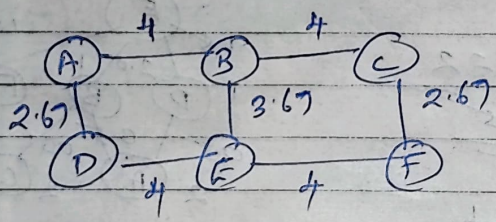 4 4
A B C
2.67 3.67 2.67
D E F
4 4